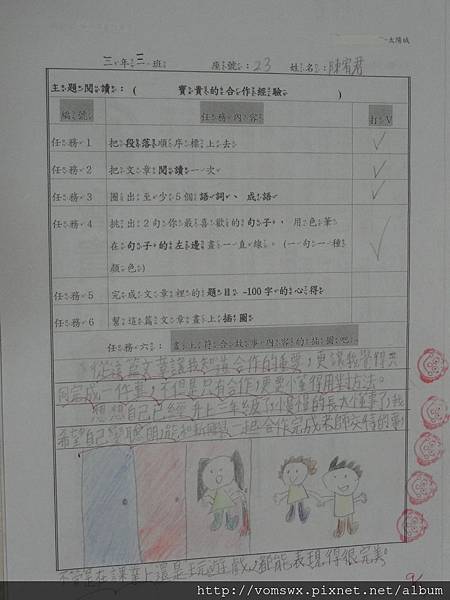 太陽城
三年三班 座號:23 姓名:陳宥君
主題閱讀:( 寶貴的合作經驗 )
編號 任務內容 打V
任務1 把段落順序標上去 ✓
任務2 把文章閱讀一次 ✓
任務3 圈出至少5個語詞、成語 ✓
任務4 挑出2句你最喜歡的句子,用色筆
在句子的左邊畫一直線。(一句一種
顏色) ✓
任務5 完成文章裡的題目-100字的心得
任務6 幫這篇文章畫上插圖
任務六:畫上符合故事內容的插圖吧
從這篇文章讓我知道合作的重要,更讓我習得共
同完成一件事,不但是只有合作,還要小單得用對方法。
想想自己已經升上三年級了,小賓恆的長大懂事了,我
希望自己聰明能和新同學一起合作完成老師交待的事,
不管是在課業上還是玩遊戲,都能表現得很完美。
http://vomswx.pixnet.net/album